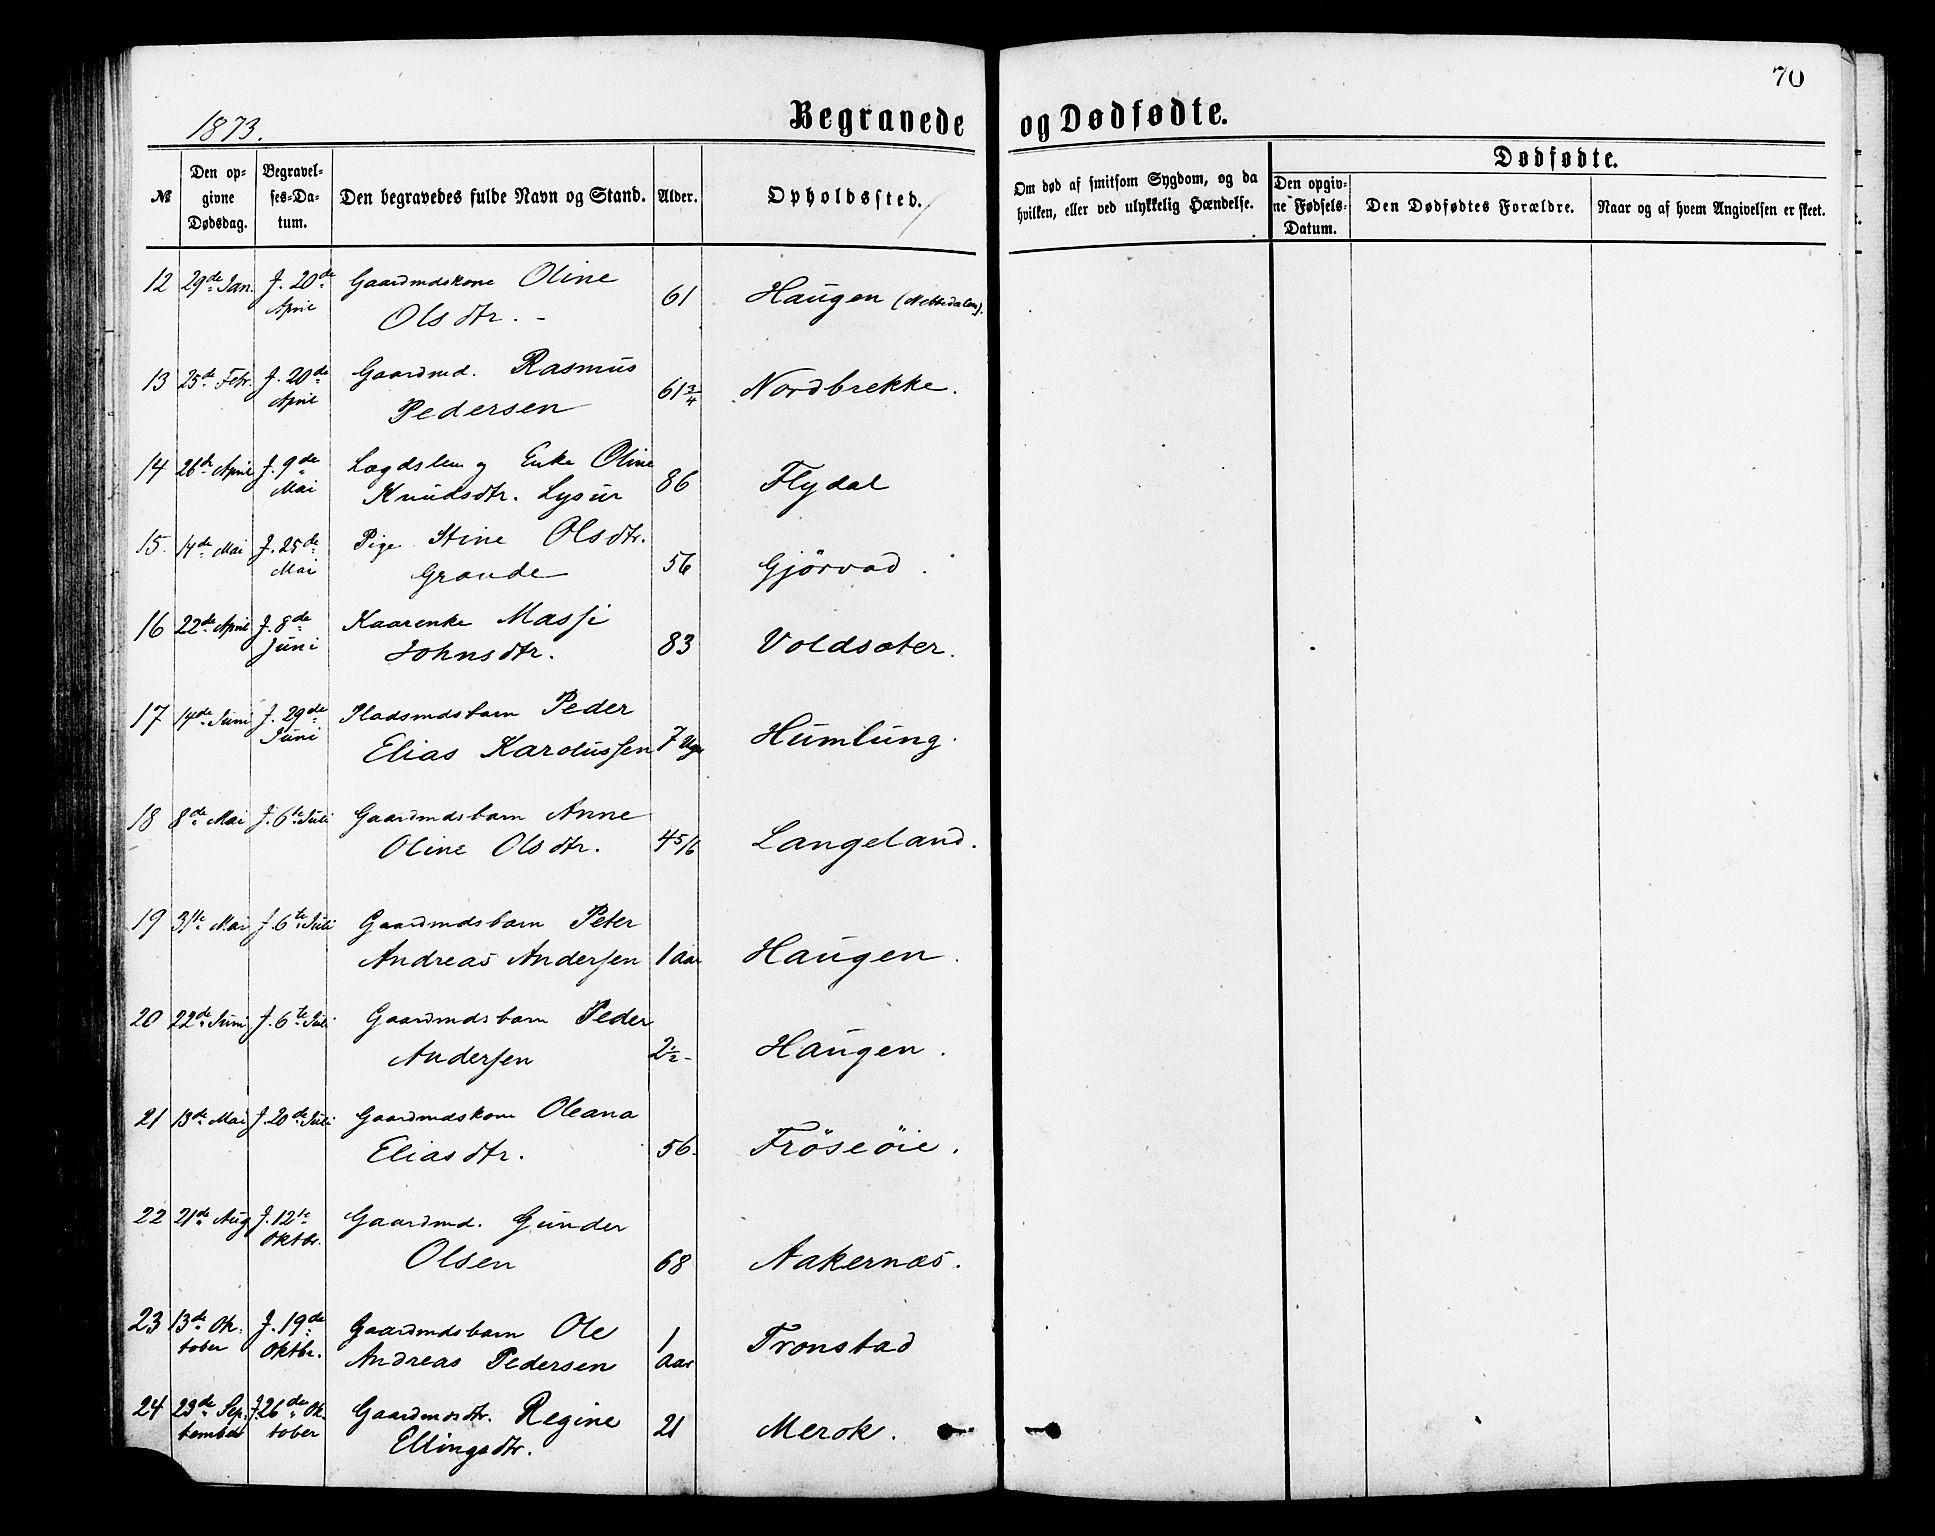 70
1873.
Begravede og Dødfødte.
№
Den opgivne Dødsdag.
Begravelses-Datum.
Den begravedes fulde Navn og Stand.
Alder.
Opholdssted.
Om død af smitsom Sygdom, og da hvilken, eller ved ulykkelig Hændelse.
Dødfødte.
Den opgivne Fødsels-Datum.
Den Dødfødtes Forældre.
Naar og af hvem Angivelsen er skeet.
12 29de Jan. J. 20de April Gaardmdskone Oline
Olsdtr. - 61 Haugen (Nebbedalen).
13 25de Febr. J. 20de April Gaardmd. Rasmus
Pedersen 61 3/4 Nordbrekke.
14 26de April J. 9de Mai Lægdslem og Enke Oline
Knudsdtr. Lysur 86 Flydal
15. 14de Mai J. 25de Mai Pige Stine Olsdtr.
Grande 56 Gjörvad.
16 22de April J. 8de Juni Kaarenke Massi
Johnsdtr. 83 Voldsæter.
17 14de Juni J. 29de Juni Pladsmdsbarn Peder
Elias Karolussen 7 Uger Humlung.
18 8de Mai J. 6te Juli Gaardmdsbarn Anne
Oline Olsdtr. 4 5/6 Langeland.
19 31te Mai J. 6te Juli Gaardmdsbarn Peter
Andreas Andersen 1 Aar Haugen.
20 22de Juni J. 6te Juli Gaardmdsbarn Peder
Andersen 2 1/2 - Haugen.
21 13de Mai J. 20de Juli Gaardmdskone Oleana
Eliasdtr. 56. Fröseöie.
22 21de Aug J. 12te Oktbr. Gaardmd. Gunder
Olsen 68 Aakernæs.
23 13de Oktober J. 19de Oktbr. Gaardmdsbarn Ole
Andreas Pedersen 1 Aar Tronstad
24 23de September J. 26de Oktober Gaardmdsdtr. Regine
Ellingsdtr. 21 Merok.